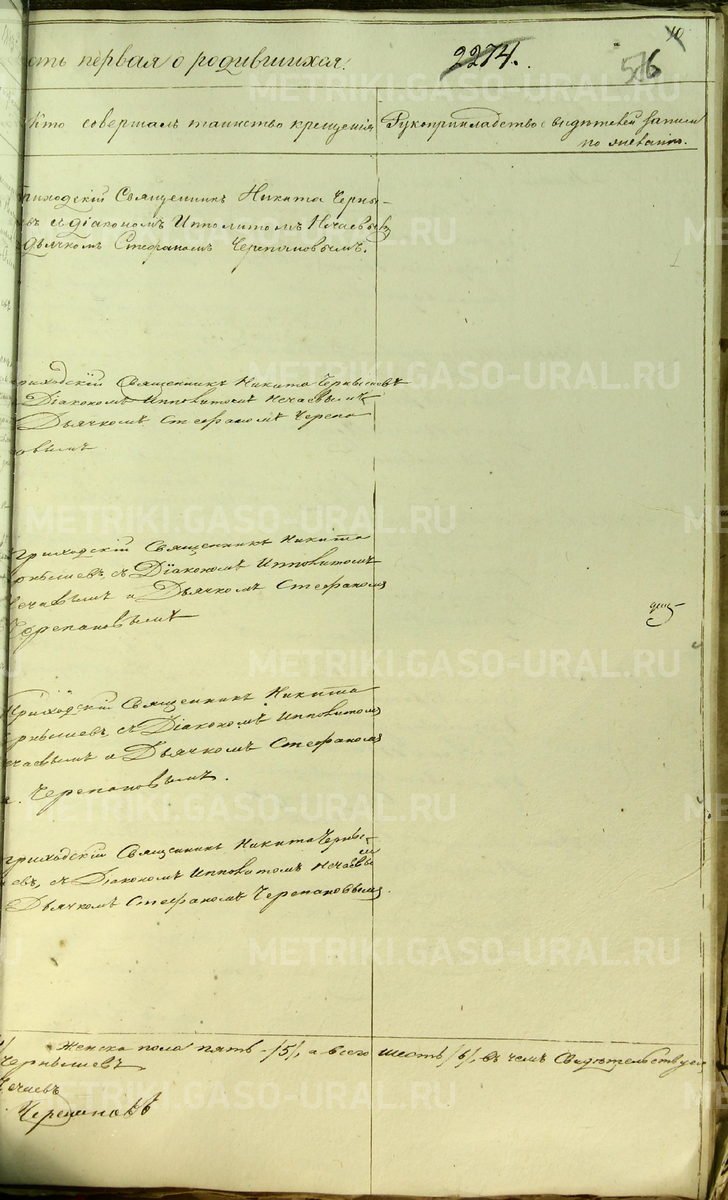 10
сть первая о родившихся.
2274.
576
Кто совершалъ таинство крещенія
Рукоприкладство свидѣтелей записи
по желанію.
Приходскій Священникъ Никита Черны-
въ съ діакономъ Ипполитомъ Нечаевы
дьячкомъ Стефаномъ Черепановымъ.
риходскій Священникъ Никита Чернышевъ
Діакономъ Ипполитомъ Нечаевымъ
Дьячкомъ Стефаномъ Черепа
овымъ.
Приходскій Священникъ Никита
рнышевъ, съ Діакономъ Ипполитомъ
ечаевымъ и Дьячкомъ Стефаномъ
Черепановымъ
Приходскій Священникъ Никита
рнышевъ, съ Діакономъ Ипполитомъ
ечаевымъ и Дьячкомъ Стефаномъ
Черепановымъ.
риходскій Священникъ Никита Черны-
евъ, съ Діакономъ Ипполитомъ Нечаевы
Дьячкомъ Стефаномъ Черепановымъ.
Женска пола пять /5/, а всего шесть /6/, въ чемъ Свидѣтельствуем
Чернышевъ
Нечаевъ
Черепановъ
METRIKI.GASO-URAL.RU